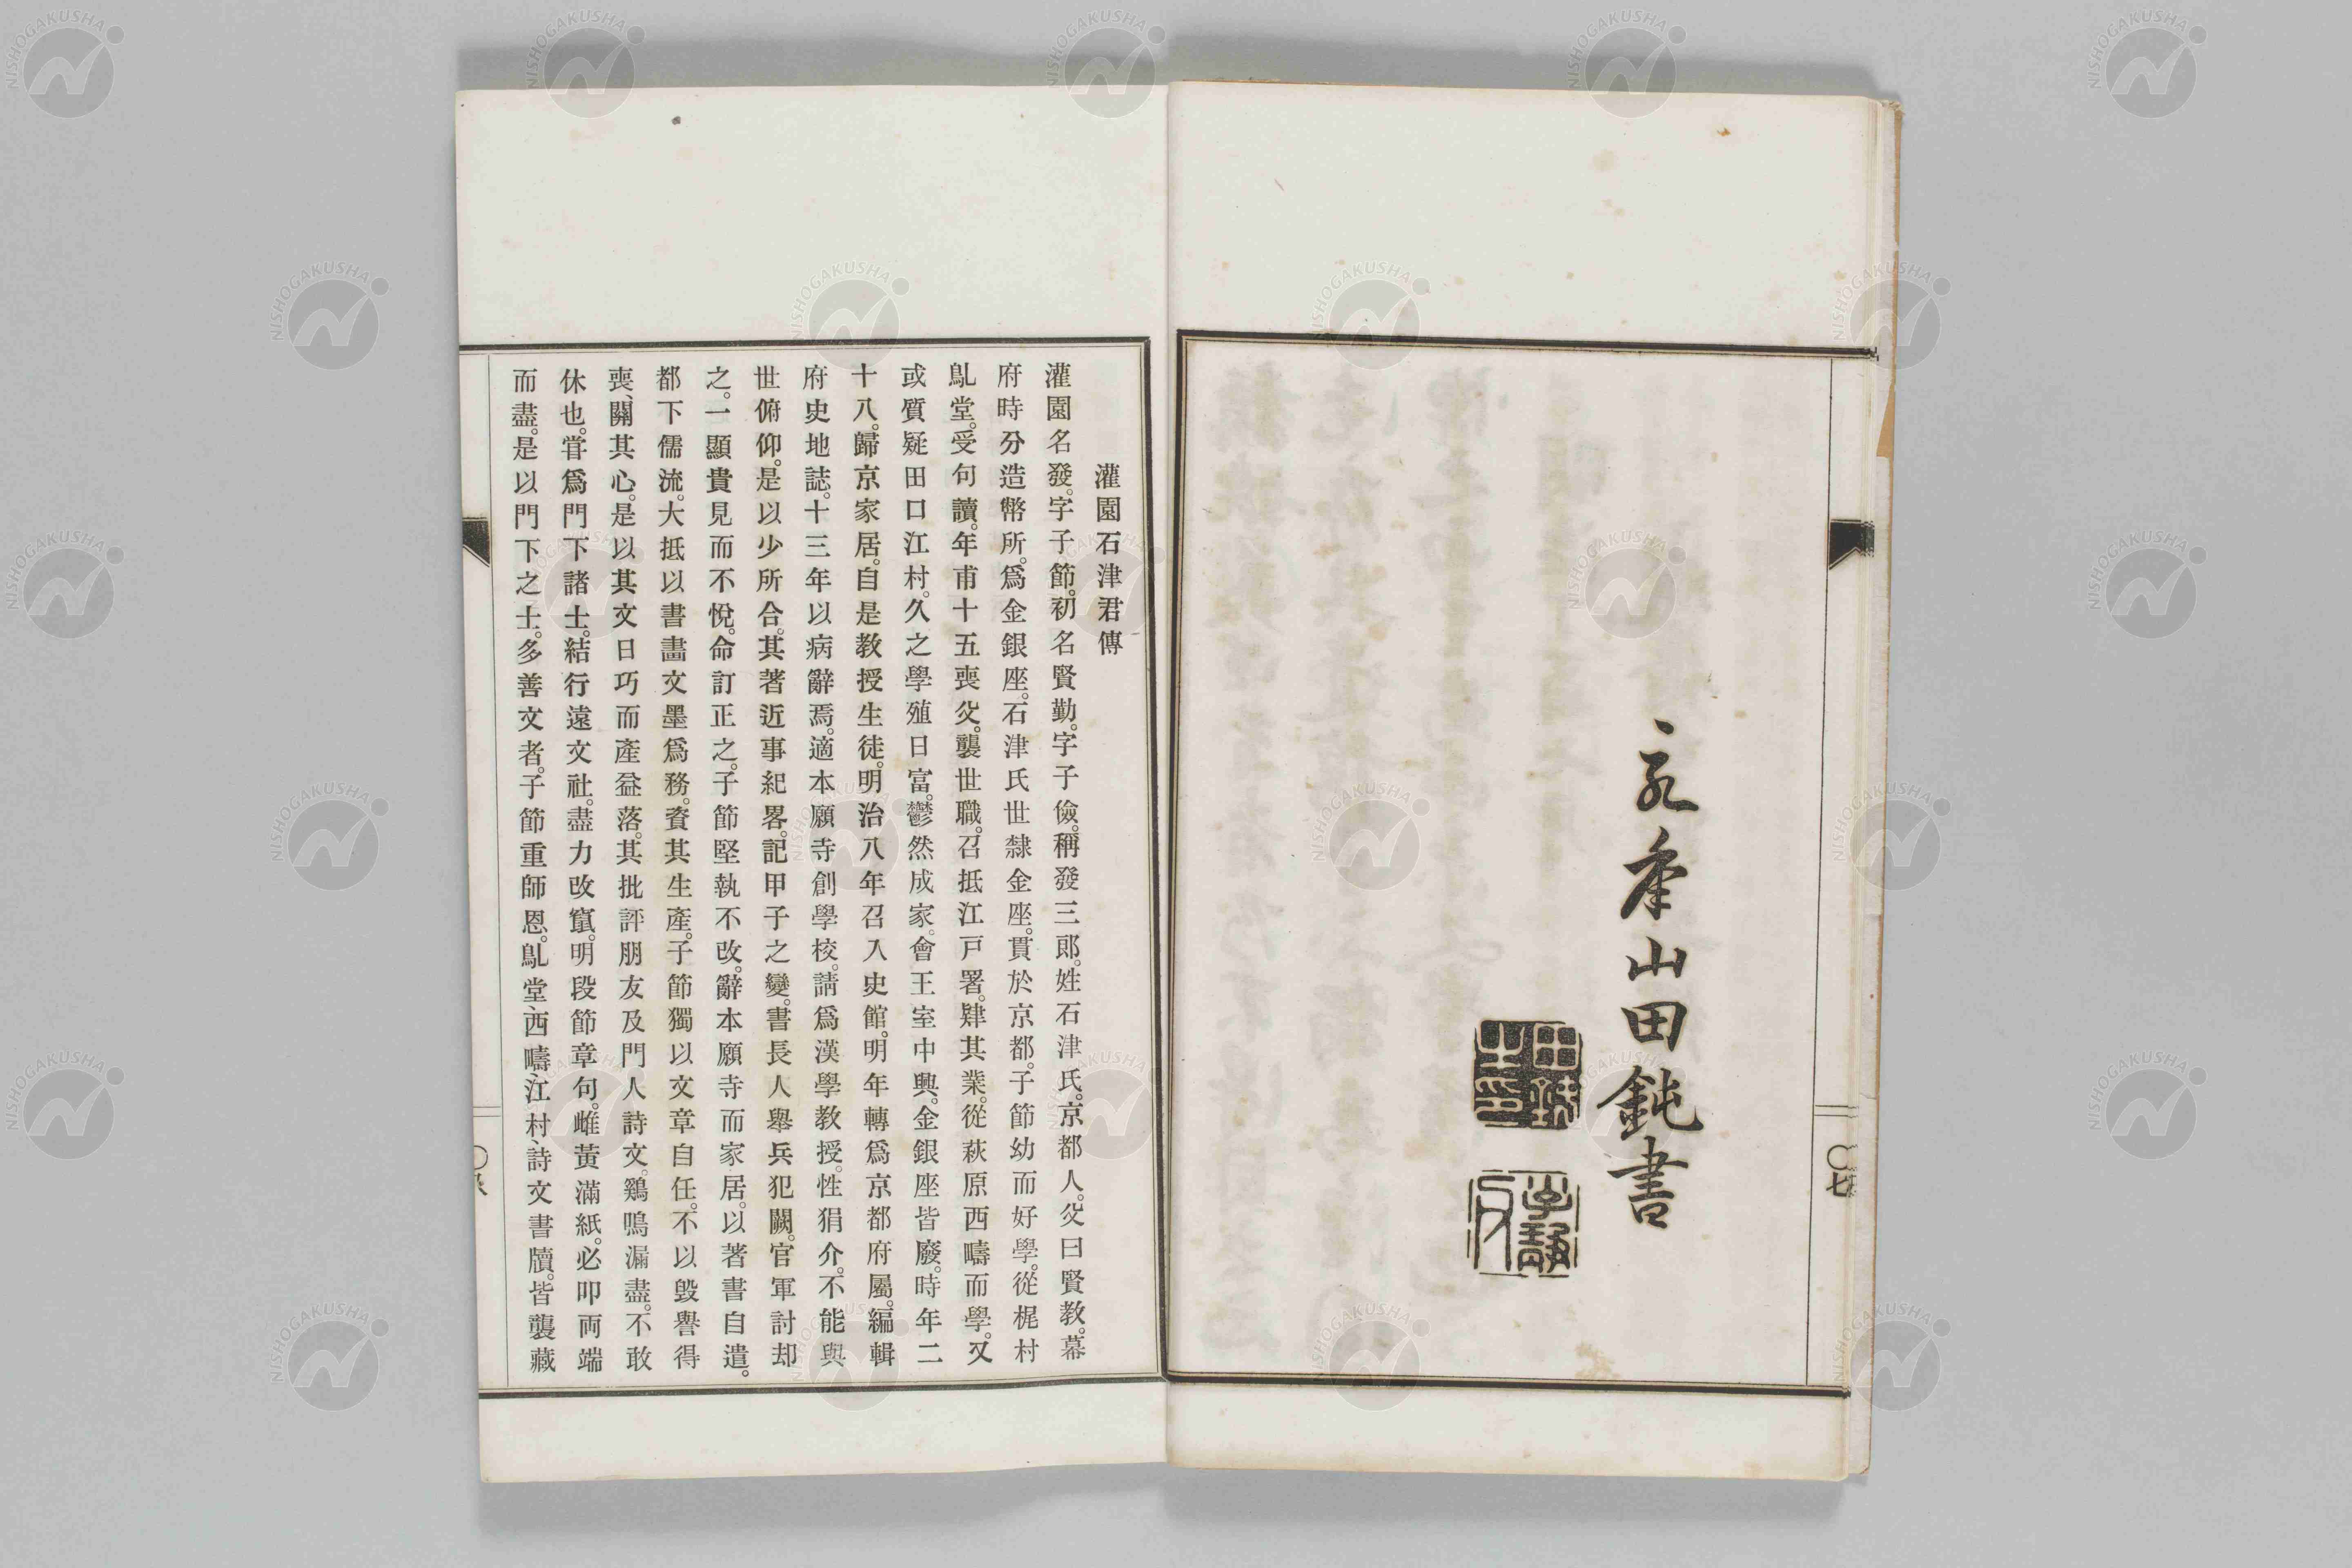 永年山田鈍書
〇七
灌園石津君傳
灌園名發。字子節。初名賢勤。字子儉。稱發三郎。姓石津氏。京都人。父曰賢教。幕
府時分造幣所。爲金銀座。石津氏世隸金座。貫於京都。子節幼而好學。從梶村
鼽堂。受句讀。年甫十五喪父。襲世職。召抵江戸署。肄其業。從萩原西疇而學。又
或質疑田口江村。久之學殖日富。鬱然成家。會王室中興。金銀座皆廢。時年二
十八。歸京家居。自是教授生徒。明治八年召入史館。明年轉爲京都府屬。編輯
府史地誌。十三年以病辭焉。適本願寺創學校。請爲漢學教授。性狷介。不能與
世俯仰。是以少所合。其著近事紀畧。記甲子之變。書長人擧兵犯闕。官軍討却
之。一顯貴見而不悅。命訂正之。子節堅執不改。辭本願寺而家居。以著書自遣。
都下儒流。大抵以書畫文墨爲務。資其生產。子節獨以文章自任。不以毀譽得
喪、關其心。是以其文日巧而產益落。其批評朋友及門人詩文。鷄鳴漏盡。不敢
休也。嘗爲門下諸士。結行遠文社。盡力改竄。明段節章句。雌黃滿紙。必叩両端
而盡。是以門下之士。多善文者。子節重師恩。鼽堂、西疇、江村、詩文書牘。皆襲藏
NISHOGAKUSHA